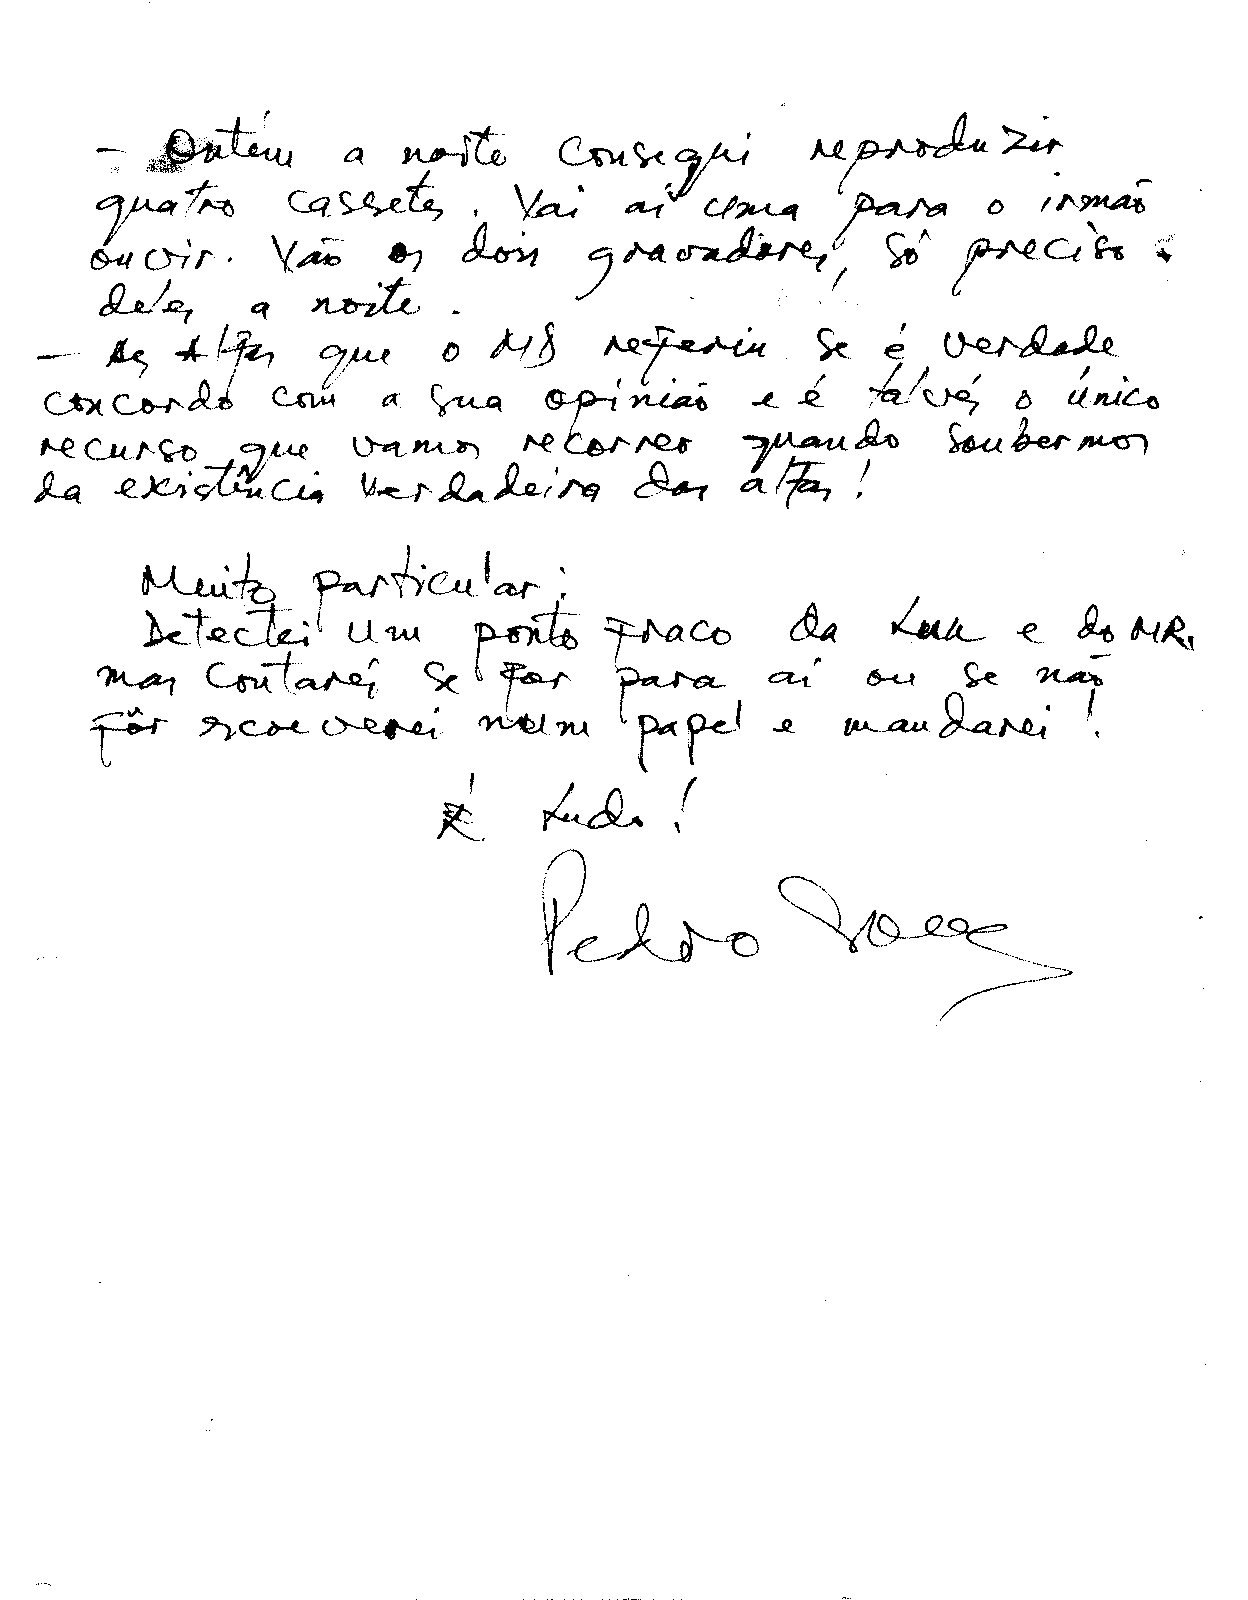 - Ontém a noite consegui reproduzir
quatro cassetes. Vai aí uma para o irmão
ouvir. Vão os dois gravadores, só preciso
deles a noite.
- As altas que o MS referiu se é verdade
concordo com a sua opinião e é talvés o único
recurso que vamos recorrer quando soubermos
da existência verdadeira das altas!
Muito particular:
Detectei um ponto fraco da Lua e do MR,
mas contarei se for para aí ou se não
fôr escreverei num papel e mandarei!
É tudo!
Pedro